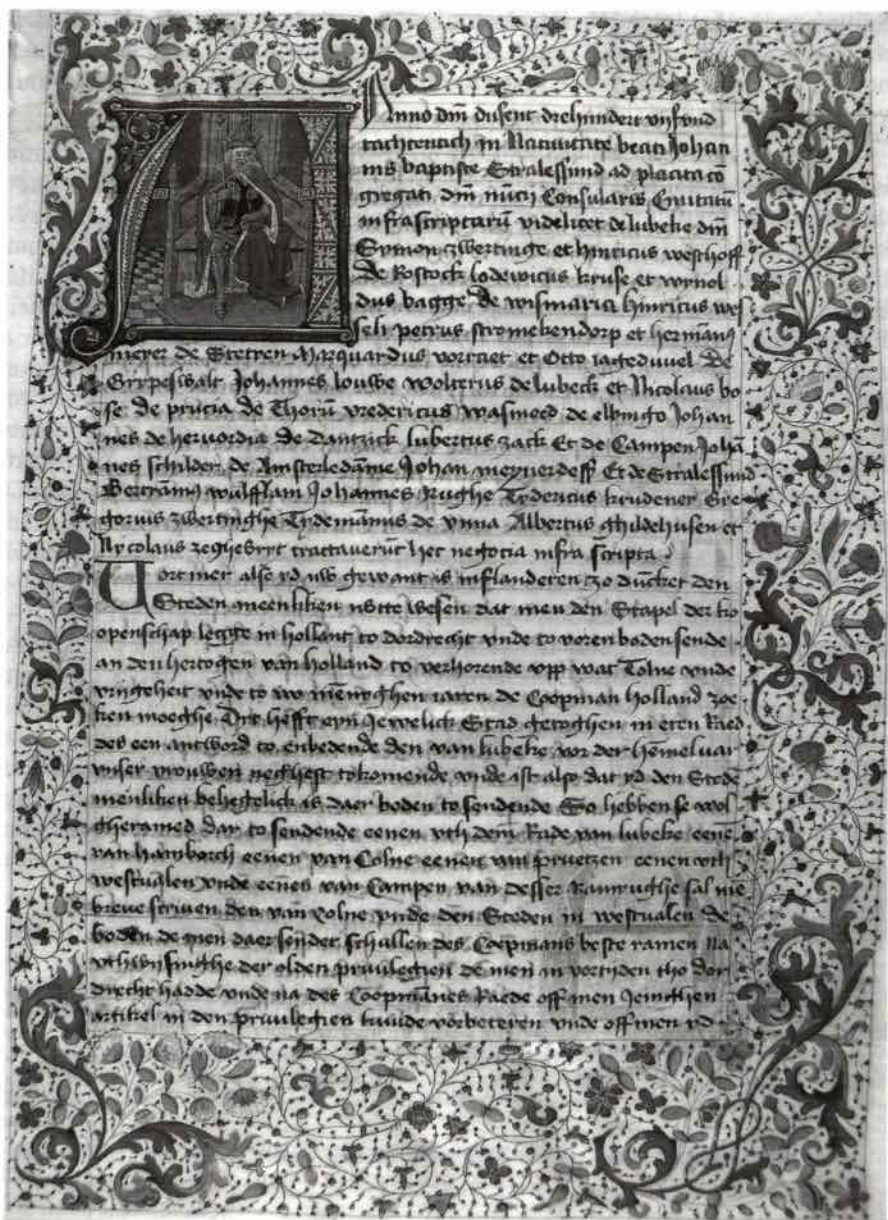 Anno dm̄ dusent drehundert vijfvnd
tachtentich in Natiuitate beati Johan
nis baptiste Stralessund ad placita cō
gregati dm̄ nūcij Consulariū Ciuitatū
infrascriptarū videlicet de lubeke dm̄
Symon zwertinge et hinricus westhoff
de Rostock lodewicus kruse et wynol
dus bagge de wismaria hinricus wes
seli petrus stromekendorp et hermanꝰ
meyer de Stetten Marquardus et Otto iageduuel de
Grypeswalt Johannes louwe wolterus de lubeck et Nicolaus bo
se de prucia de Thorū vredericus wasmoed de elbingo Johan
nes de hervordia de Dantzick lubertus zack Et de Campen Johā
nes schilder de Amsterledāme Johan meynerdess Et de Stralessund
Bertramꝰ wulfflam Johannes Rughe Tydericus krudener Gre
gorius zwertinghe Tydemānus de vnna Albertus ghildehusen et
Nycolaus zeghefryt tractauerūt hec negocia infra scripta
Vort mer alse yd nw gewant is in flanderen zo dūcket den
Steden meenliken nutte wesen dat men den Stapel der ko
openschap legge in hollant to dordrecht vnde to voren boden sende
an den hertogen van holland to verhorende vpp wat Tolne vnde
vrygeheit vnde to wo mēnyghen iaren de Coopman Holland zoe
ken moeghe Dit hefft eyn Jewelick Stad getoghen in eren Raed
des een antword to enbedende den van lubeke vor der hēmeluar
vnser vrouwen neghest tokomende vnde ist also dat yd den Stede
menliken behegelick is daer boden to sendende So hebben se wol
gheramed dar to sendende eenen vth dem Rade van lubeke eenē
van hamborch eenen van Colne eenen van pruetzen eenen vth
westualen vnde eenen van Campen van desser Ramynghe sal me
breue scriuen den van Colne vnde den Steden in westualen de
boden de men daer sendet schullen des Coepmans beste ramen Na
vthwysinghe der olden priuilegien de men in vortyden tho dor
drecht hadde vnde na des Coopmānes Raede off men Jenighen
artikel in den priuilegien kunde vorbeteren vnde off men yd